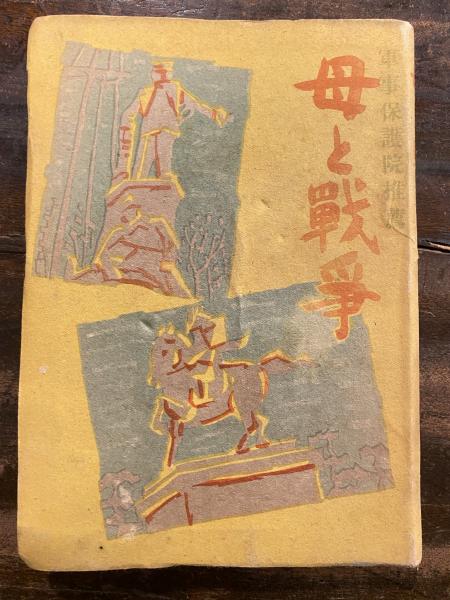 軍事保護院推薦
母と戰爭